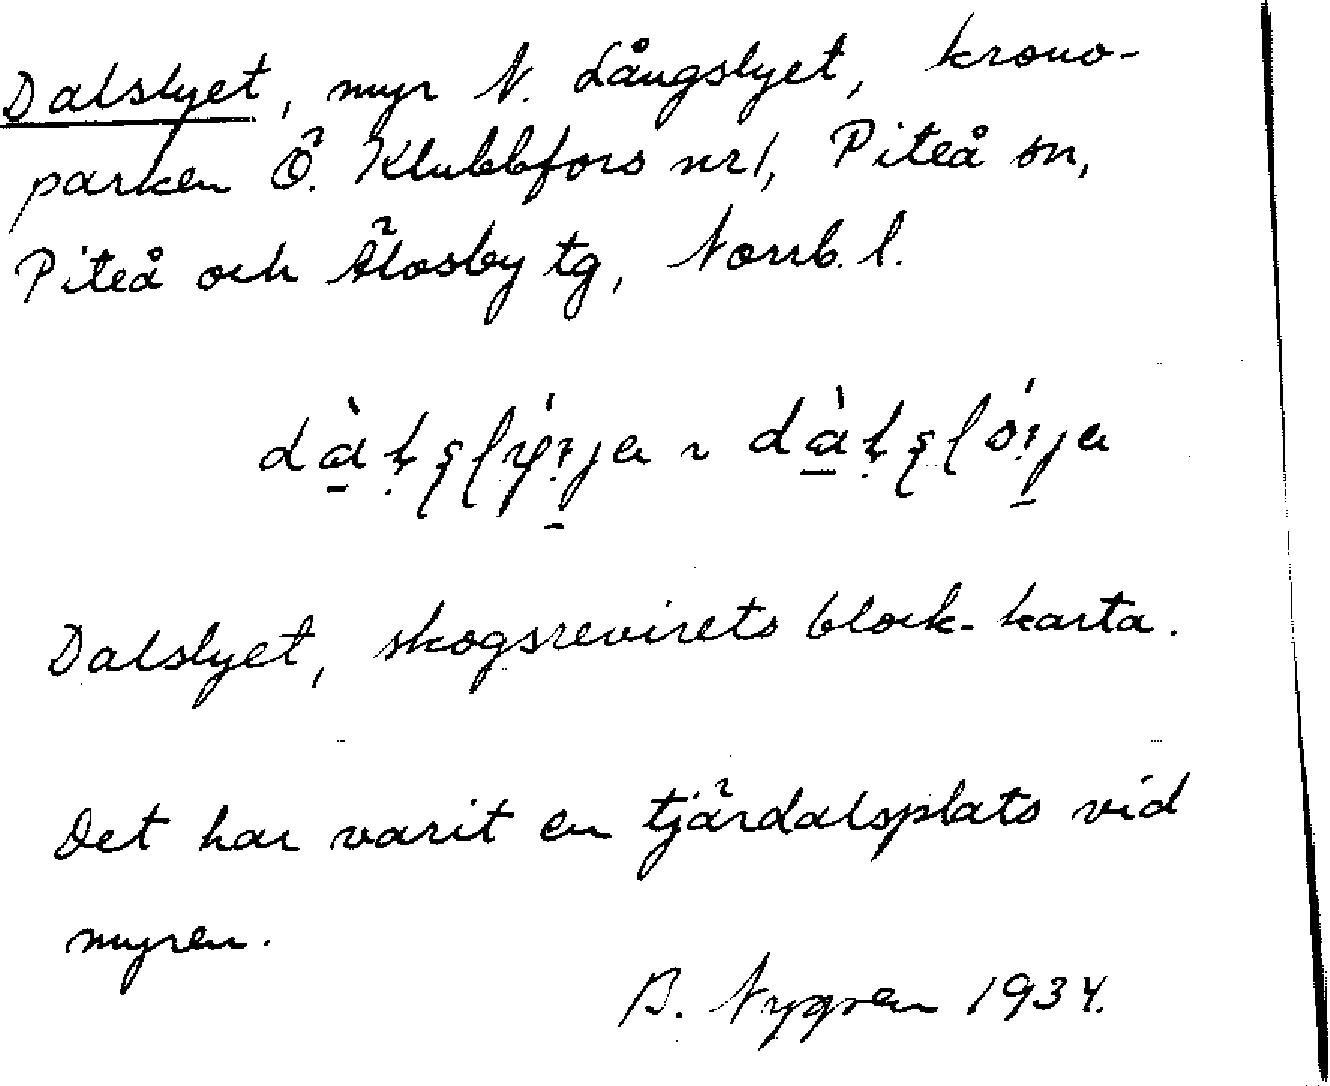 Dalslyet, myr N. Långslyet, krono-
parken Ö. Klubbfors nr 1, Piteå sn,
Piteå och Älvsby tg, Norrb. l.
Dalslyet, skogsrevirets block-karta.
Det har varit en tjärdalsplats vid
myren.
B. Nygren 1934.